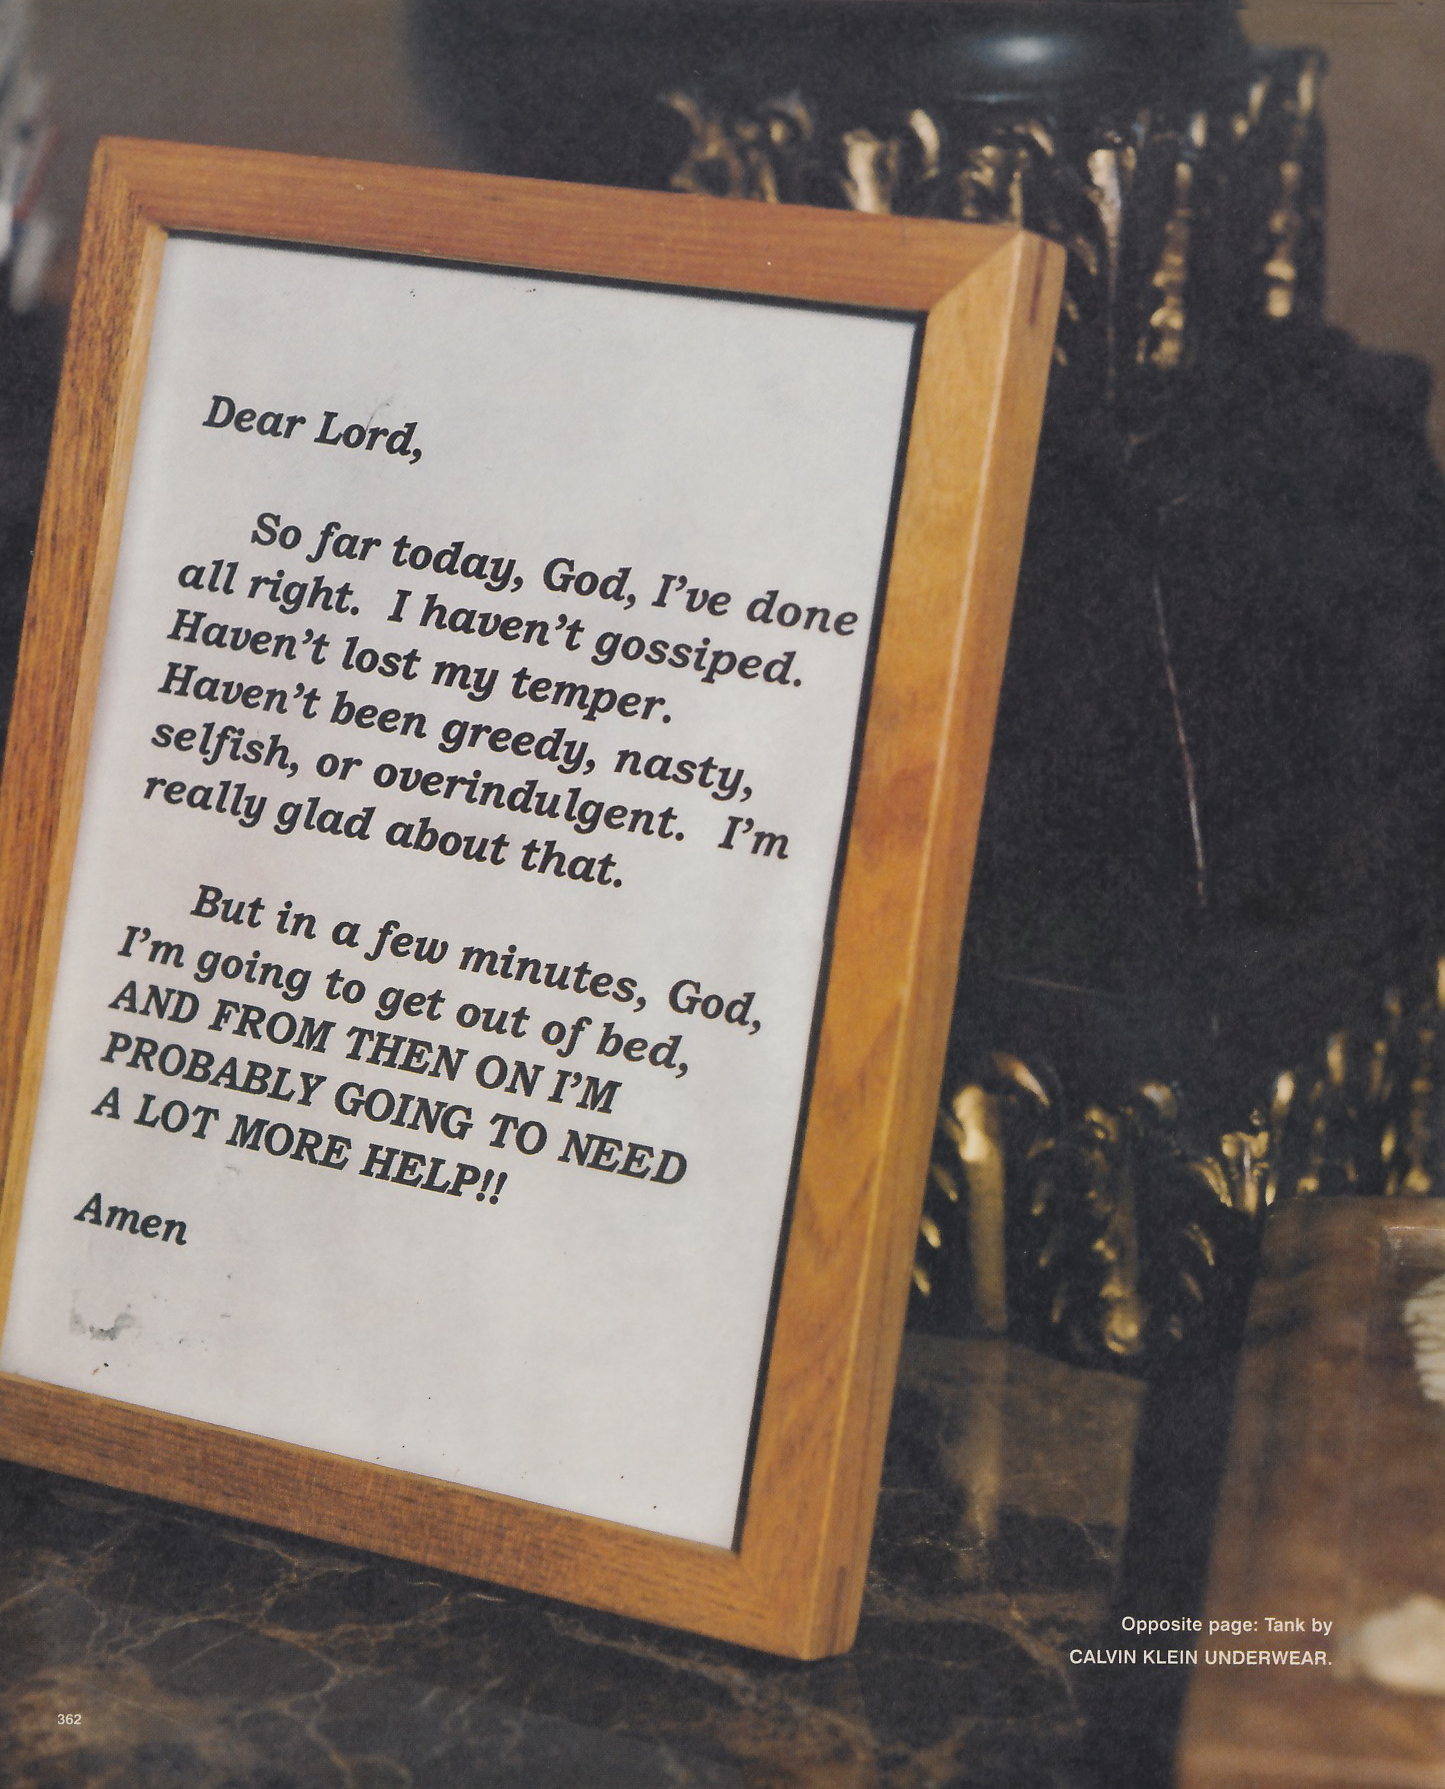 Dear Lord,
So far today, God, I've done
all right. I haven't gossiped.
Haven't lost my temper.
Haven't been greedy, nasty,
selfish, or overindulgent. I'm
really glad about that.
But in a few minutes, God,
I'm going to get out of bed,
AND FROM THEN ON I'M
PROBABLY GOING TO NEED
A LOT MORE HELP!!
Amen
Opposite page: Tank by
CALVIN KLEIN UNDERWEAR.
362